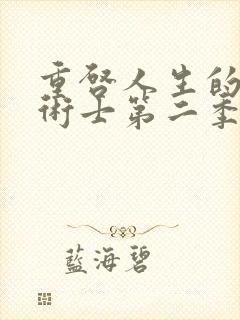 重啓人生的
術士第二季
藍海碧